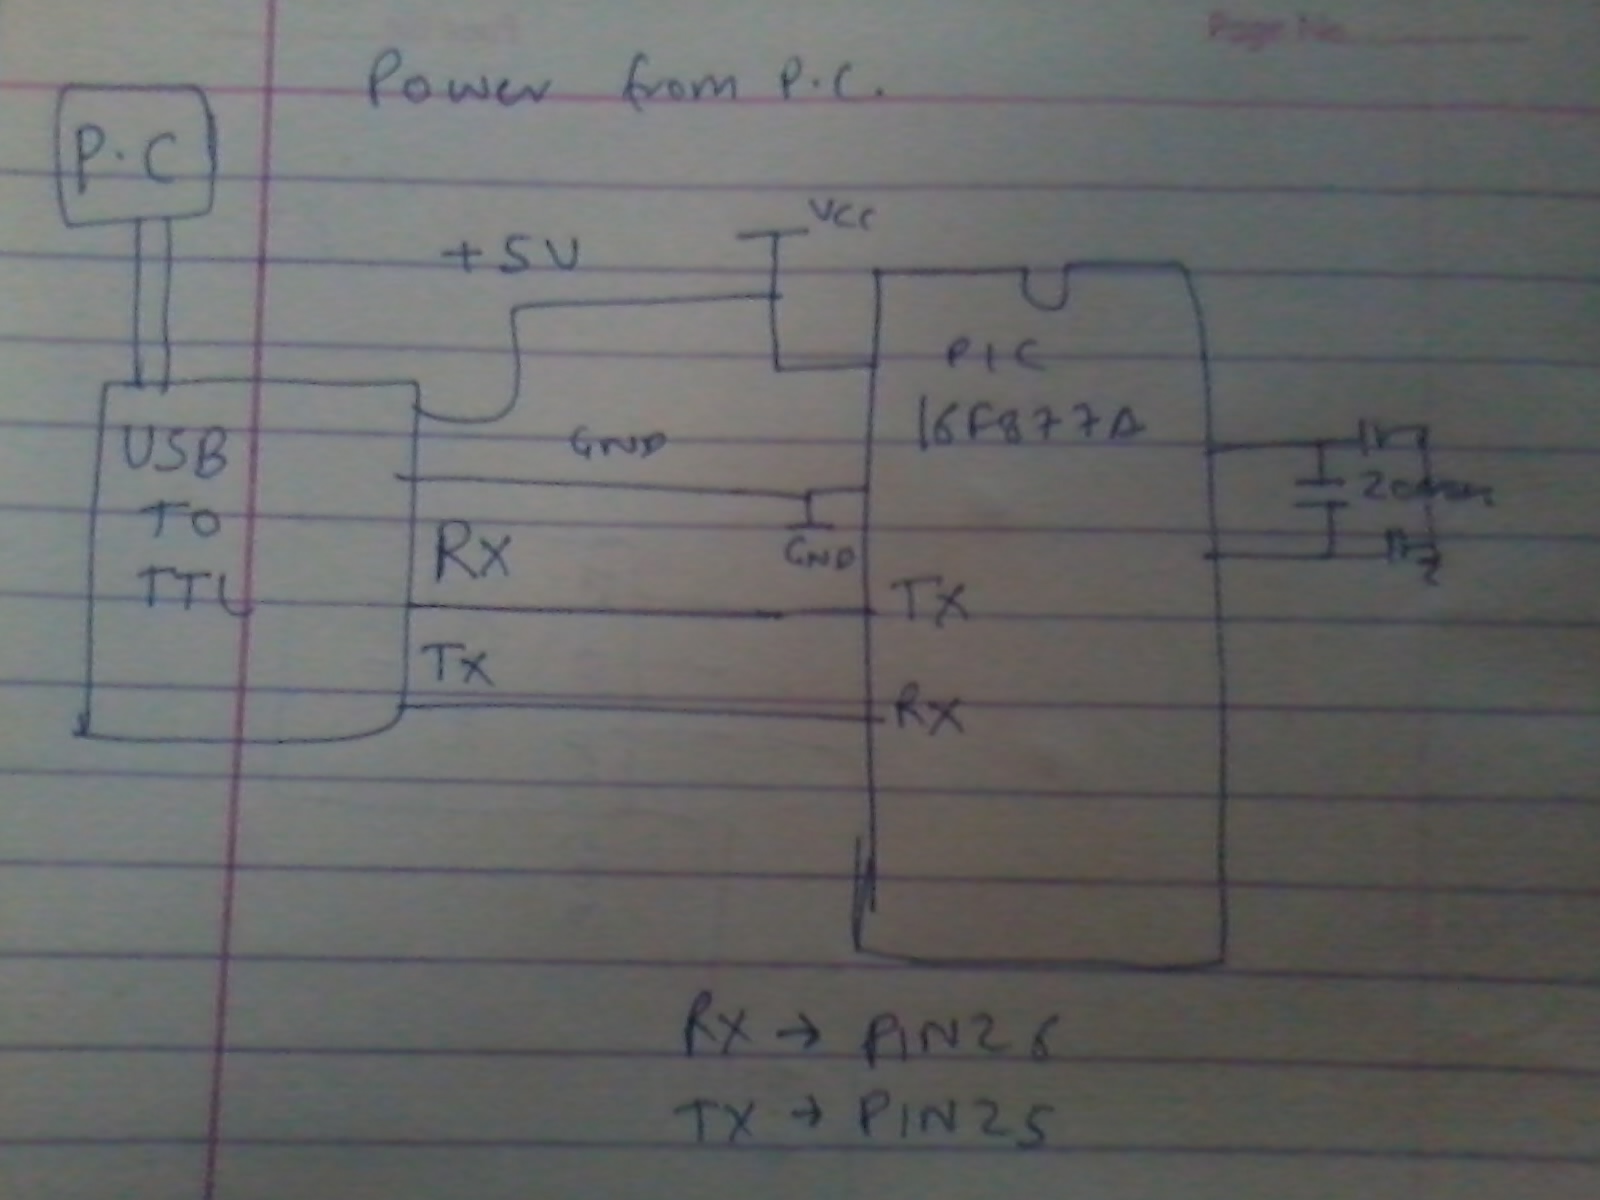 Page No.
Power from P.C.
P.C
VCC
+5V
PIC
16F877A
USB
TO
TTL
GND
GND
Rx
TX
Tx
RX
RX → PIN26
TX → PIN25